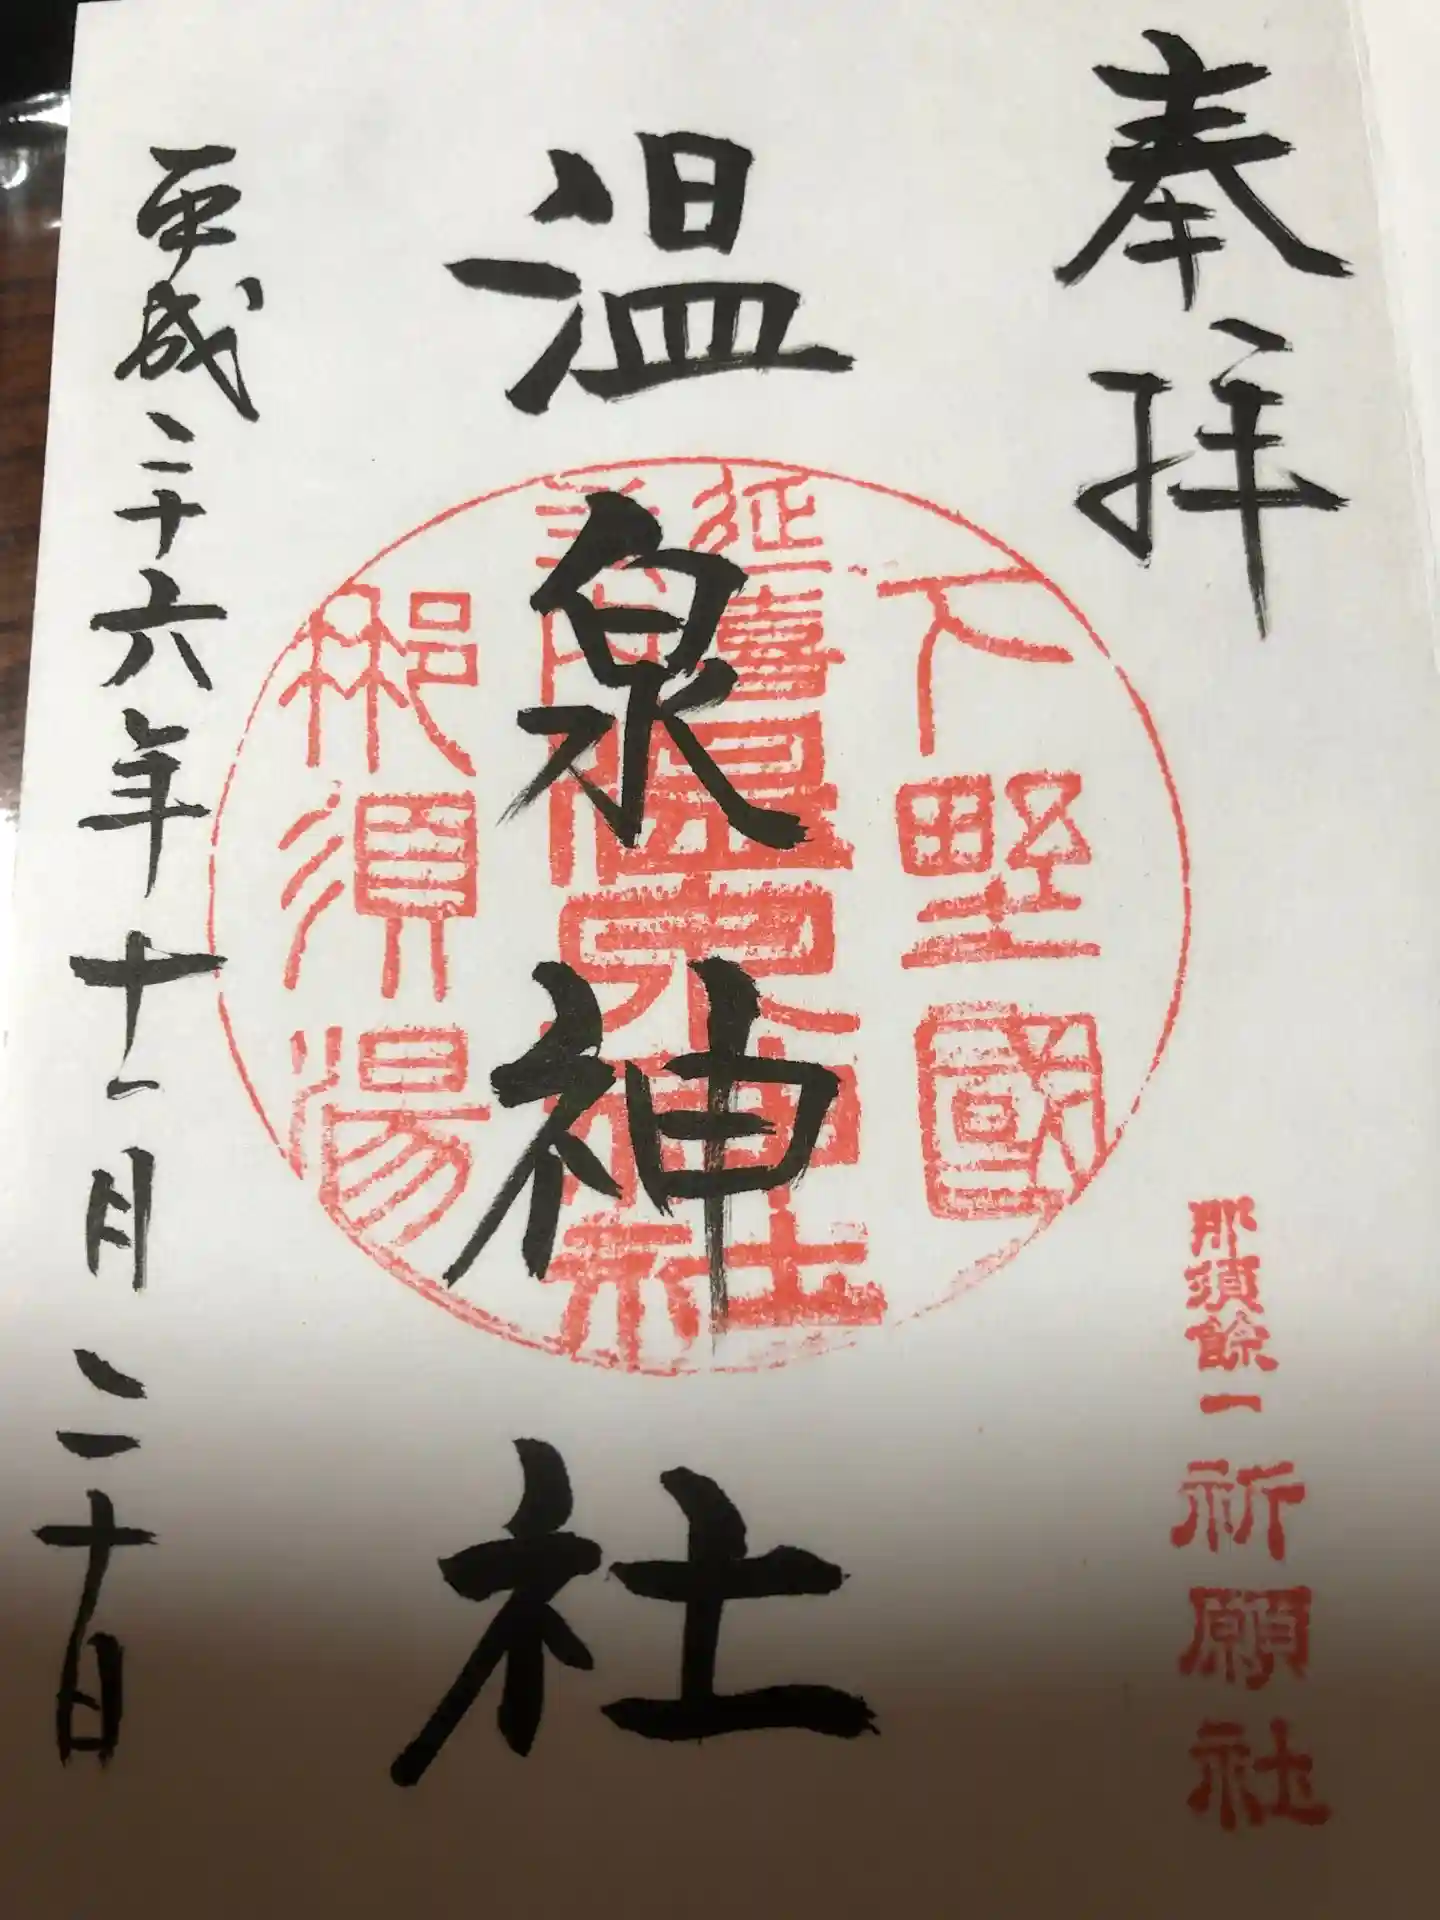 奉拝
那須餘一祈願社
下野國
延喜
温泉神社
那須湯
温泉神社
平成二十六年十一月二十日